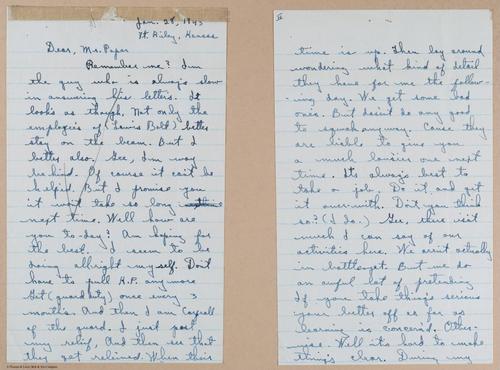 Jan. 28, 1943
Ft. Riley, Kansas
Dear, Mr. Paper
Remember me? I'm
the guy who is always slow
in answering his letters. It
looks as though, Not only the
employees of (Lewis Bolt) better
stay on the beam. But I
better also. Gee, I'm way
behind. Of course it can't be
helped. But I promise you
it won't take so long
next time. Well how are
you to-day? Am hoping for
the best. I seem to be
doing allright myself. Don't
have to pull K.P. anymore
Get (guard duty) once every 3
months. And then I am Corporall
of the guard. I just post
my relief, And then see that
they get relieved. When their
II
time is up. Then lay around
wondering what kind of detail
they have for me the follow-
ing day. We get some bad
ones. But dosn't do any good
to squak anyway. Cause they
are liable to give you
a much lousier one next
time. It's always best to
take a job, Do it, and get
it over with. Don't you think
so? (I do.) Gee, there isn't
much I can say of our
activities here. We arn't actually
in battle yet. But we do
an awful lot of pretending
If you take things serious
your better off as far as
learning is concern'd. Other-
wise. Well its hard to make
things clear. During my